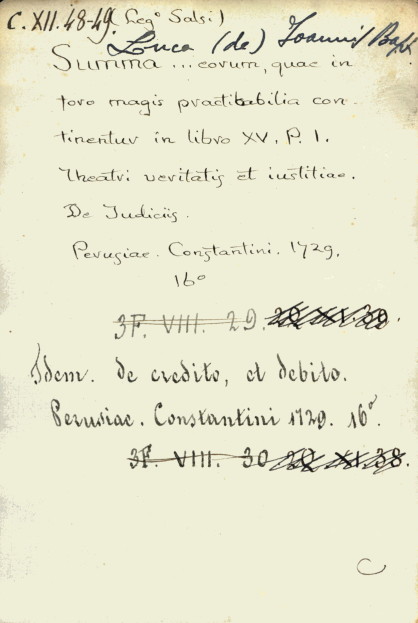 C. XII. 48-49. (Leg° Salsi)
Luca (de) Joannis Bapt
Summa ... eorum, quae in
foro magis practicabilia con-
tinentur in libro XV. P. I.
theatri veritatis et iustitiae.
De Judiciis.
Perusiae. Constantini. 1729.
16°
3F. VIII. 29.
Idem. de credito, et debito.
Perusiae. Constantini 1729. 16°.
3F. VIII. 30
C